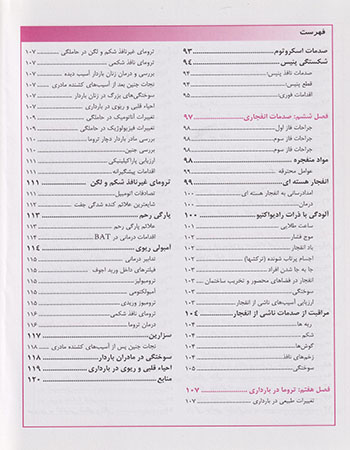 فهرست
صدمات اسکروتوم ... ۹۳
شکستگی پنیس ... ۹۴
صدمات نافذ پنیس: ... ۹۴
قطع پنیس: ... ۹۴
اقدامات فوری: ... ۹۵
فصل ششم: صدمات انفجاری ... ۹۷
جراحات فاز اول ... ۹۸
جراحات فاز سوم ... ۹۸
جراحات فاز سوم: ... ۹۸
مواد منفجره ... ۹۸
عوامل محترقه ... ۹۹
انفجار هسته ای ... ۹۹
امدادرسانی به انفجار هسته ای ... ۱۰۰
درمان ... ۱۰۰
آلودگی با ذرات رادیواکتیو ... ۱۰۰
ساعت طلایی ... ۱۰۱
موج فشار ... ۱۰۲
باد انفجار ... ۱۰۲
اجسام پرتاب شونده (ترکشها) ... ۱۰۲
جا به جا شدن افراد ... ۱۰۳
انفجار در فضاهای محصور و تخریب ساختمان ... ۱۰۳
سوختگی ... ۱۰۳
ارزیابی آسیب‌های ناشی از انفجار ... ۱۰۳
مراقبت از صدمات ناشی از انفجار ... ۱۰۴
ریه ها ... ۱۰۴
شکم ... ۱۰۴
گوش‌ها ... ۱۰۴
زخم‌های نافذ ... ۱۰۴
سوختگی ... ۱۰۵
فصل هفتم: تروما در بارداری ... ۱۰۷
تغییرات طبیعی در بارداری ... ۱۰۷
ترومای غیرنافذ شکم و لگن در حاملگی ... ۱۰۷
ترومای نافذ شکمی ... ۱۰۷
بررسی و درمان زنان باردار آسیب دیده ... ۱۰۷
نجات جنین بعد از آسیب‌های کشنده مادری ... ۱۰۷
سوختگی‌های بزرگ در زنان باردار ... ۱۰۷
احیاء قلبی و ریوی در بارداری ... ۱۰۷
تغییرات آناتومیک در حاملگی ... ۱۰۹
تغییرات فیزیولوژیک در حاملگی ... ۱۰۹
بررسی مادر باردار دچار تروما ... ۱۱۰
بررسی جنین ... ۱۱۰
ارزیابی پاراکلینیکی ... ۱۱۰
اقدامات پیشگیرانه ... ۱۱۱
ترومای غیرنافذ شکم و لگن ... ۱۱۱
تصادفات اتومبیل ... ۱۱۱
شایعترین علائم کنده شدگی جفت ... ۱۱۲
پارگی رحم ... ۱۱۳
علائم پارگی رحم ... ۱۱۳
اقدامات درمانی در BAT ... ۱۱۴
آمبولی ریوی ... ۱۱۴
تدابیر درمانی ... ۱۱۵
فیلترهای داخل ورید اجوف ... ۱۱۵
ترومبولیز ... ۱۱۵
آمبولکتومی ... ۱۱۵
ترومبوز وریدی ... ۱۱۵
ترومای نافذ شکمی ... ۱۱۶
درمان تروما ... ۱۱۶
سزارین ... ۱۱۷
نجات جنین پس از آسیب‌های کشنده مادری ... ۱۱۸
سوختگی در مادران باردار ... ۱۱۸
احیاء قلبی و ریوی در بارداری ... ۱۱۹
منابع ... ۱۲۰